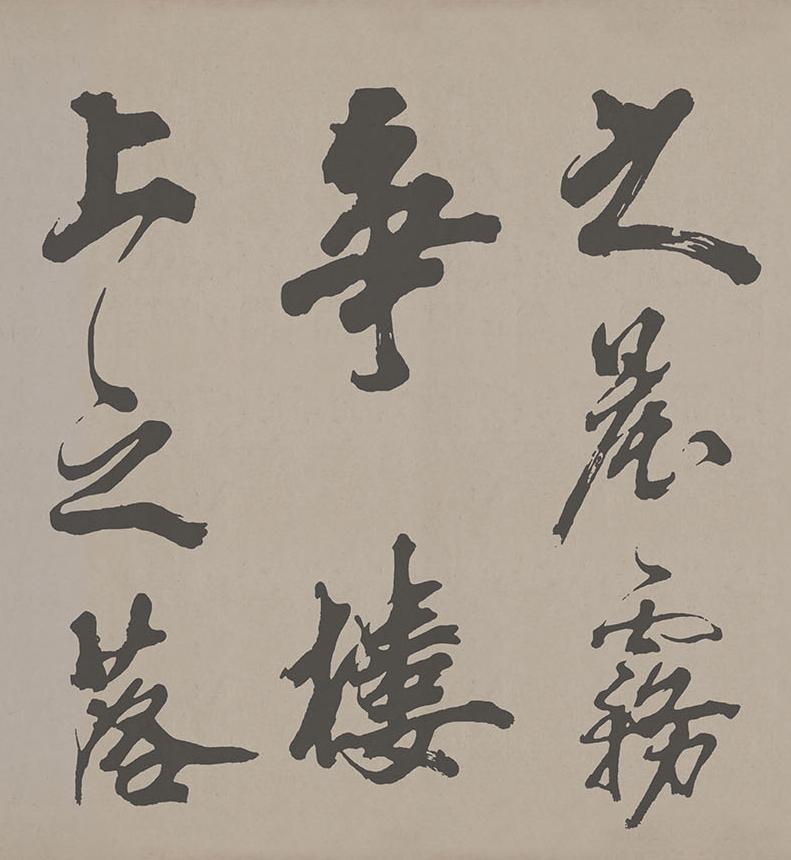 之晨霧
樓
上之落